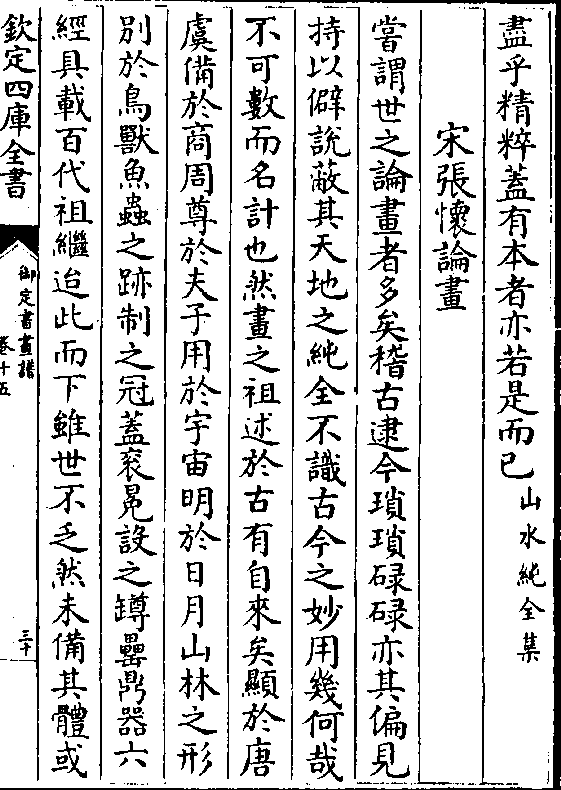 盡乎精粹蓋有本者亦若是而已山水純全集
宋張懷論畫
嘗謂世之論畫者多矣稽古逮今瑣瑣碌碌亦其偏見
持以僻説蔽其天地之純全不識古今之妙用幾何哉
不可數而名計也然畫之祖述於古有自來矣顯於唐
虞備於商周尊於夫子用於宇宙明於日月山林之形
别於鳥獸魚蟲之跡制之冠蓋衮冕設之罇罍鼎器六
經具載百代祖繼迨此而下雖世不乏然未備其體或
欽定四庫全書
御定書畫譜
卷十五
三十